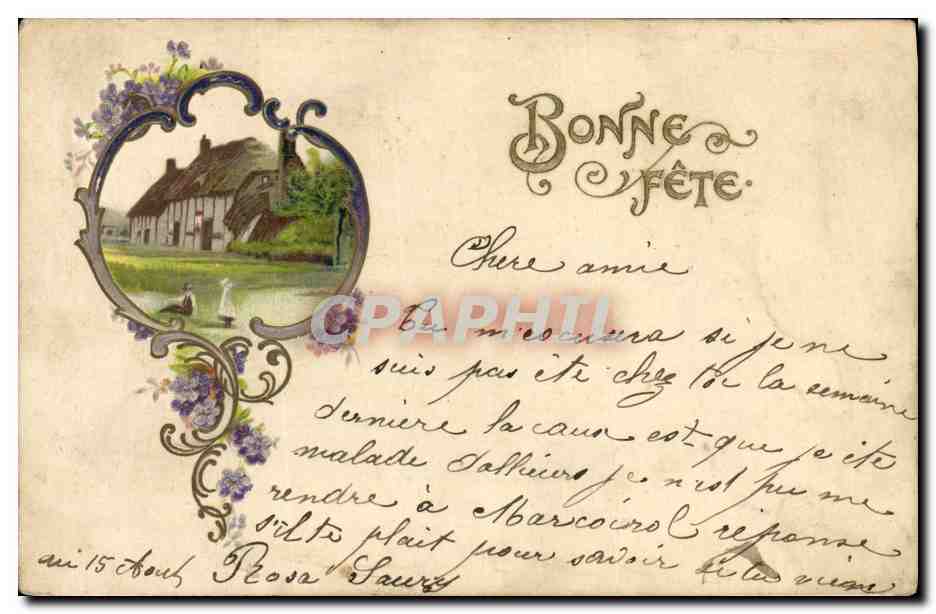 BONNE
FÊTE.
Chere amie
Tu m'ecusera si je ne
suis pas été chez toi la semaine
dernière la caus est que je été
malade d'allieurs je n'est pu me
rendre à Marcoirol réponse
s'ilte plait pour savoir si tu viens
au 15 Aout Rosa Saury
CPAPHIL